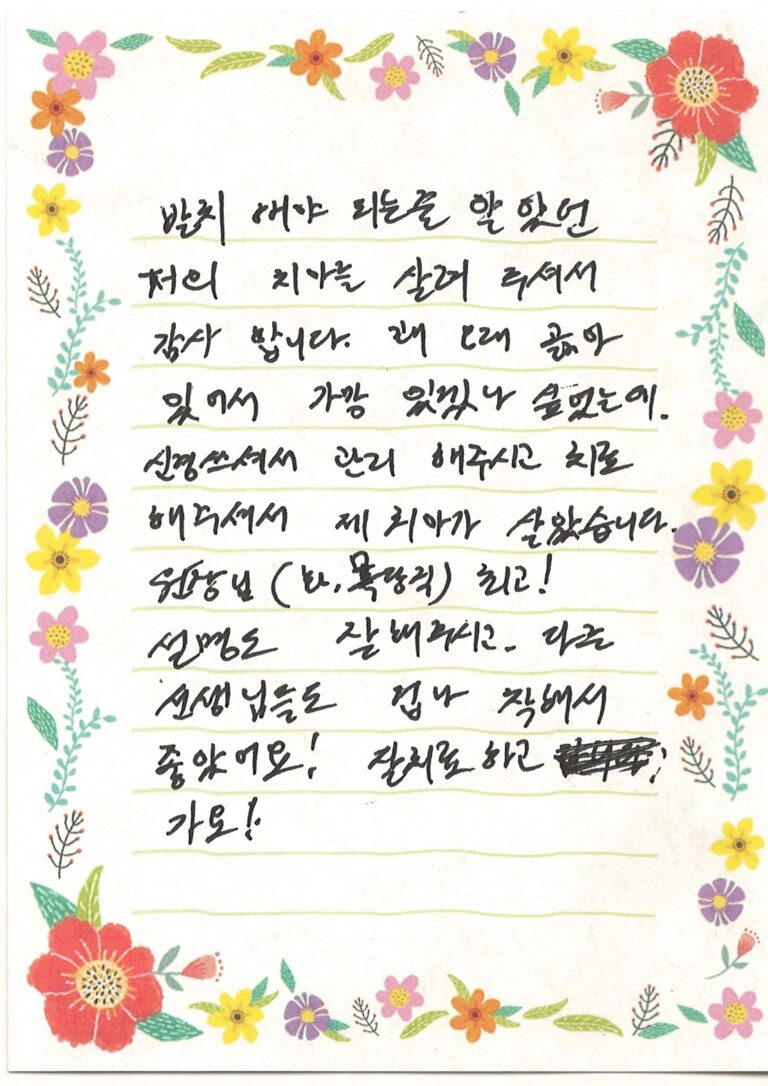 발치 해야 되는줄 알았던
저의 치아를 살려 주셔서
감사 합니다. 꽤 오래 곪아
있어서 가망 있겠나 싶었는데.
신경쓰셔서 관리 해주시고 치료
해주셔서 제 치아가 살았습니다.
원장님 ( ) 최고!
설명도 잘해주시고. 다른
선생님들도 겁나 착해서
좋았어요! 잘치료하고
가요!